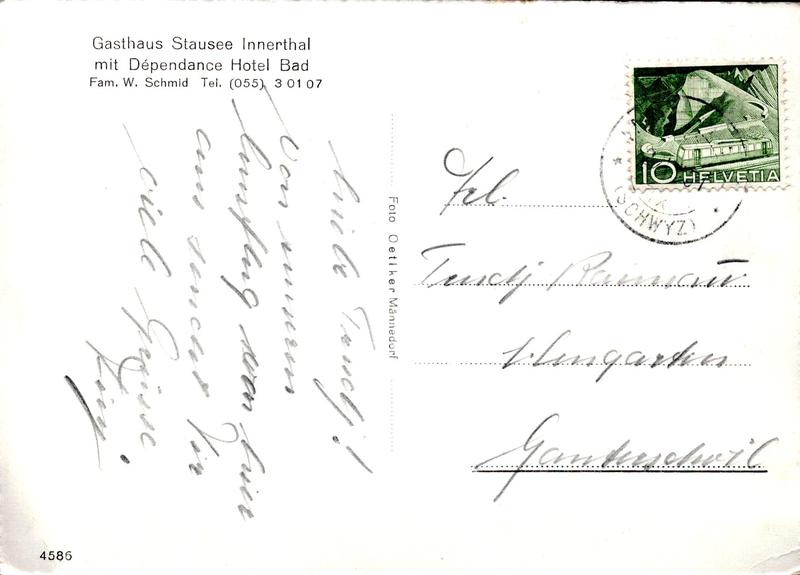 Gasthaus Stausee Innerthal
mit Dépendance Hotel Bad
Fam. W. Schmid Tel. (055) 3 01 07
Trudy!
Von unserem
Ausflug
aus sendet Dir
viele Grüsse
Foto Oetiker Männedorf
10 HELVETIA
(SCHWYZ)
Frl.
Trudy
Wengarten
Ganterschwil
4586